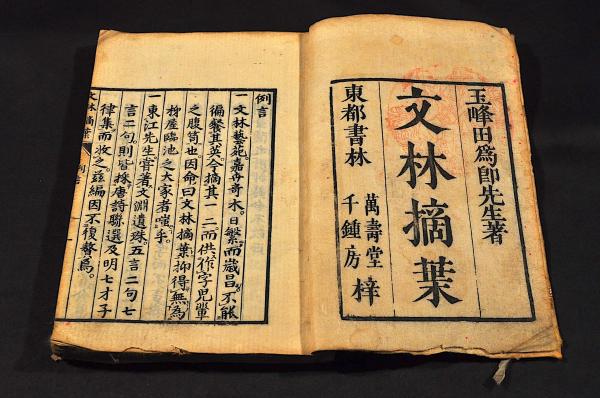 玉峰田為卽先生著
文林摘葉
東都書林
萬壽堂
千鍾房
梓
例言
一文林藝苑嘉卉奇木日繁而歲昌不能
徧餐其英今摘其一二而供作字兒輩
之腹笥也因命曰文林摘葉抑得無為
枬屋臨池之大家者嗤乎
一東江先生嘗著文淵遺珠五言二句七
言二句則皆採唐詩聯選及明七才子
律集而收之茲編因不復贅焉
文林摘葉